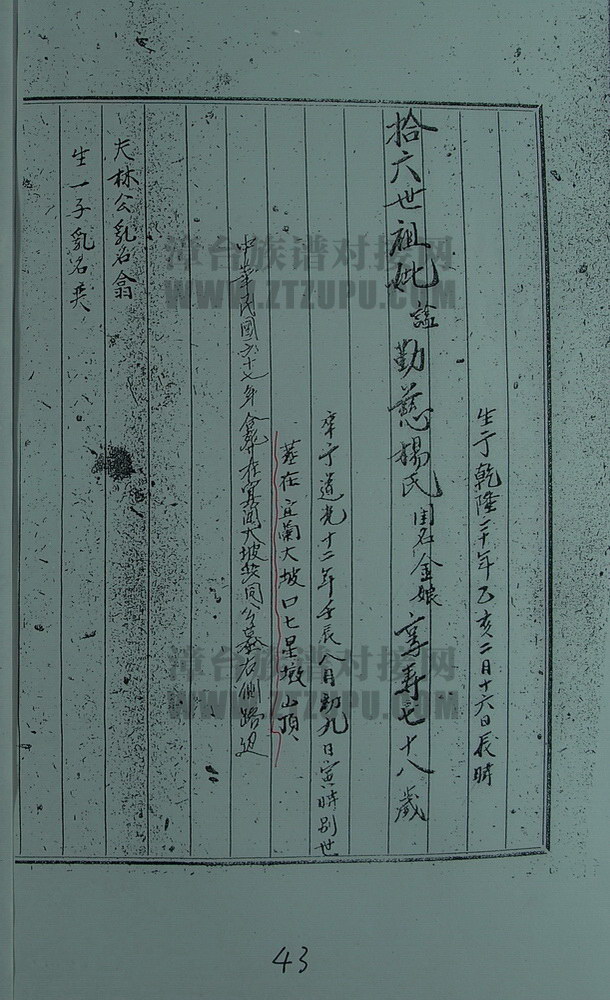 生于乾隆二十年乙亥二月十六日辰時
拾六世祖妣諡勤慈楊氏閨名金娘享寿七十八歲
卒于道光十二年壬辰八月初九日寅時別世
葬在宜蘭大坡口七星墩山頂
中華民國六十七年 在 大坡共同公墓右側路边
夫林公乳名
生一子乳名
43
漳台族谱对接网
WWW.ZTZUPU.COM
漳台族谱对接网
WWW.ZTZUPU.COM